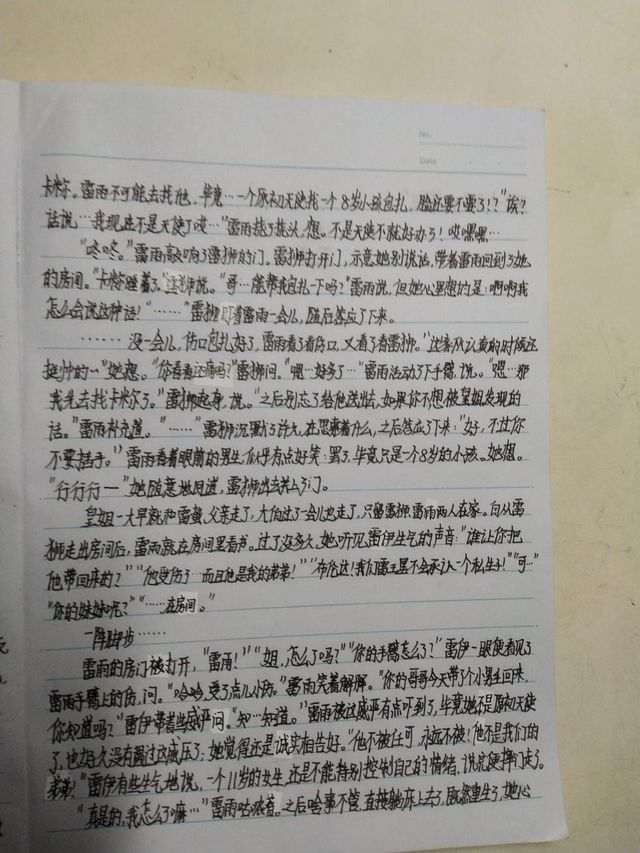 No.
Date
卡米尔。雷雨不可能去找他，毕竟…一个原初天使找一个8岁小孩包扎，脸还要不要了!？"诶？
话说…我现在不是天使了哎…"雷雨挠了挠头，想。不是天使不就好办了！哎嘿嘿…
"咚咚。"雷雨敲响了雷狮的门。雷狮打开门，示意她别说话，带着雷雨回到了她
的房间。"卡米尔睡着了。"雷狮说。"哥…能帮我包扎一下吗？"雷雨说，但她心里想的是：啊啊我
怎么会说这种话！"……"雷狮盯着雷雨一会儿，随后答应了下来。
……没一会儿，伤口包扎好了，雷雨看了看伤口，又看了看雷狮。"这家伙认真的时候还
挺帅的一"她想。"你看看还痛吗？"雷狮问。"嗯…好多了…"雷雨活动了下手臂，说。"嗯…那
我先去找卡米尔了。"雷狮起身，说。"之后别忘了给他送出去，如果你不想被皇姐发现的
话。"雷雨补充道。"……"雷狮沉默了许久，在思索着什么，之后答应了下来："好，不过你
不要插手。"雷雨看着眼前的男生，似乎有点好笑：罢了，毕竟只是一个8岁的小孩。她想。
"行行行一"她随意地回道，雷狮出去关上了门。
皇姐一大早就和雷蛰、父亲走了，大伯过了一会儿也走了，只留雷狮、雷雨两人在家。自从雷
狮走出房间后，雷雨就在房间里看书。过了没多久，她听见雷伊生气的声音："谁让你把
他带回来的？""他受伤了…而且他是我的弟弟！""布伦达！我们雷王星不会承认一个私生子！""可…"
"你的妹妹呢？""……在房间。"
一阵脚步……
雷雨的房门被打开，"雷雨！""姐，怎么了吗？""你的手臂怎么了？"雷伊一眼便看见了
雷雨手臂上的伤，问。"哈哈，受了点儿小伤。"雷雨笑着解释。"你的哥哥今天带了个小男生回来，
你知道吗？"雷伊带着些威严问。"知…知道。"雷雨被这威严有点吓到了，毕竟她不是原初天使
了，也好久没有遇过这威压了；她觉得还是诚实相告好。"他不被认可，永远不被！他不是我们的
弟弟！"雷伊有些生气地说，一个11岁的女生，还是不能特别控制自己的情绪，说完便摔门走了。
"真是的，我怎么了嘛…"雷雨咕哝着。之后啥事不管，直接躺床上去了，既然重生了，她心